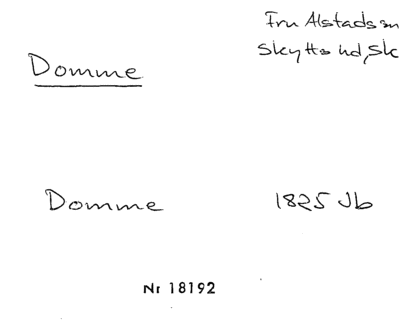 Fru Alstads sn
Domme
Skytts hd, Sk
Domme 1825 Jb
Nr 18192